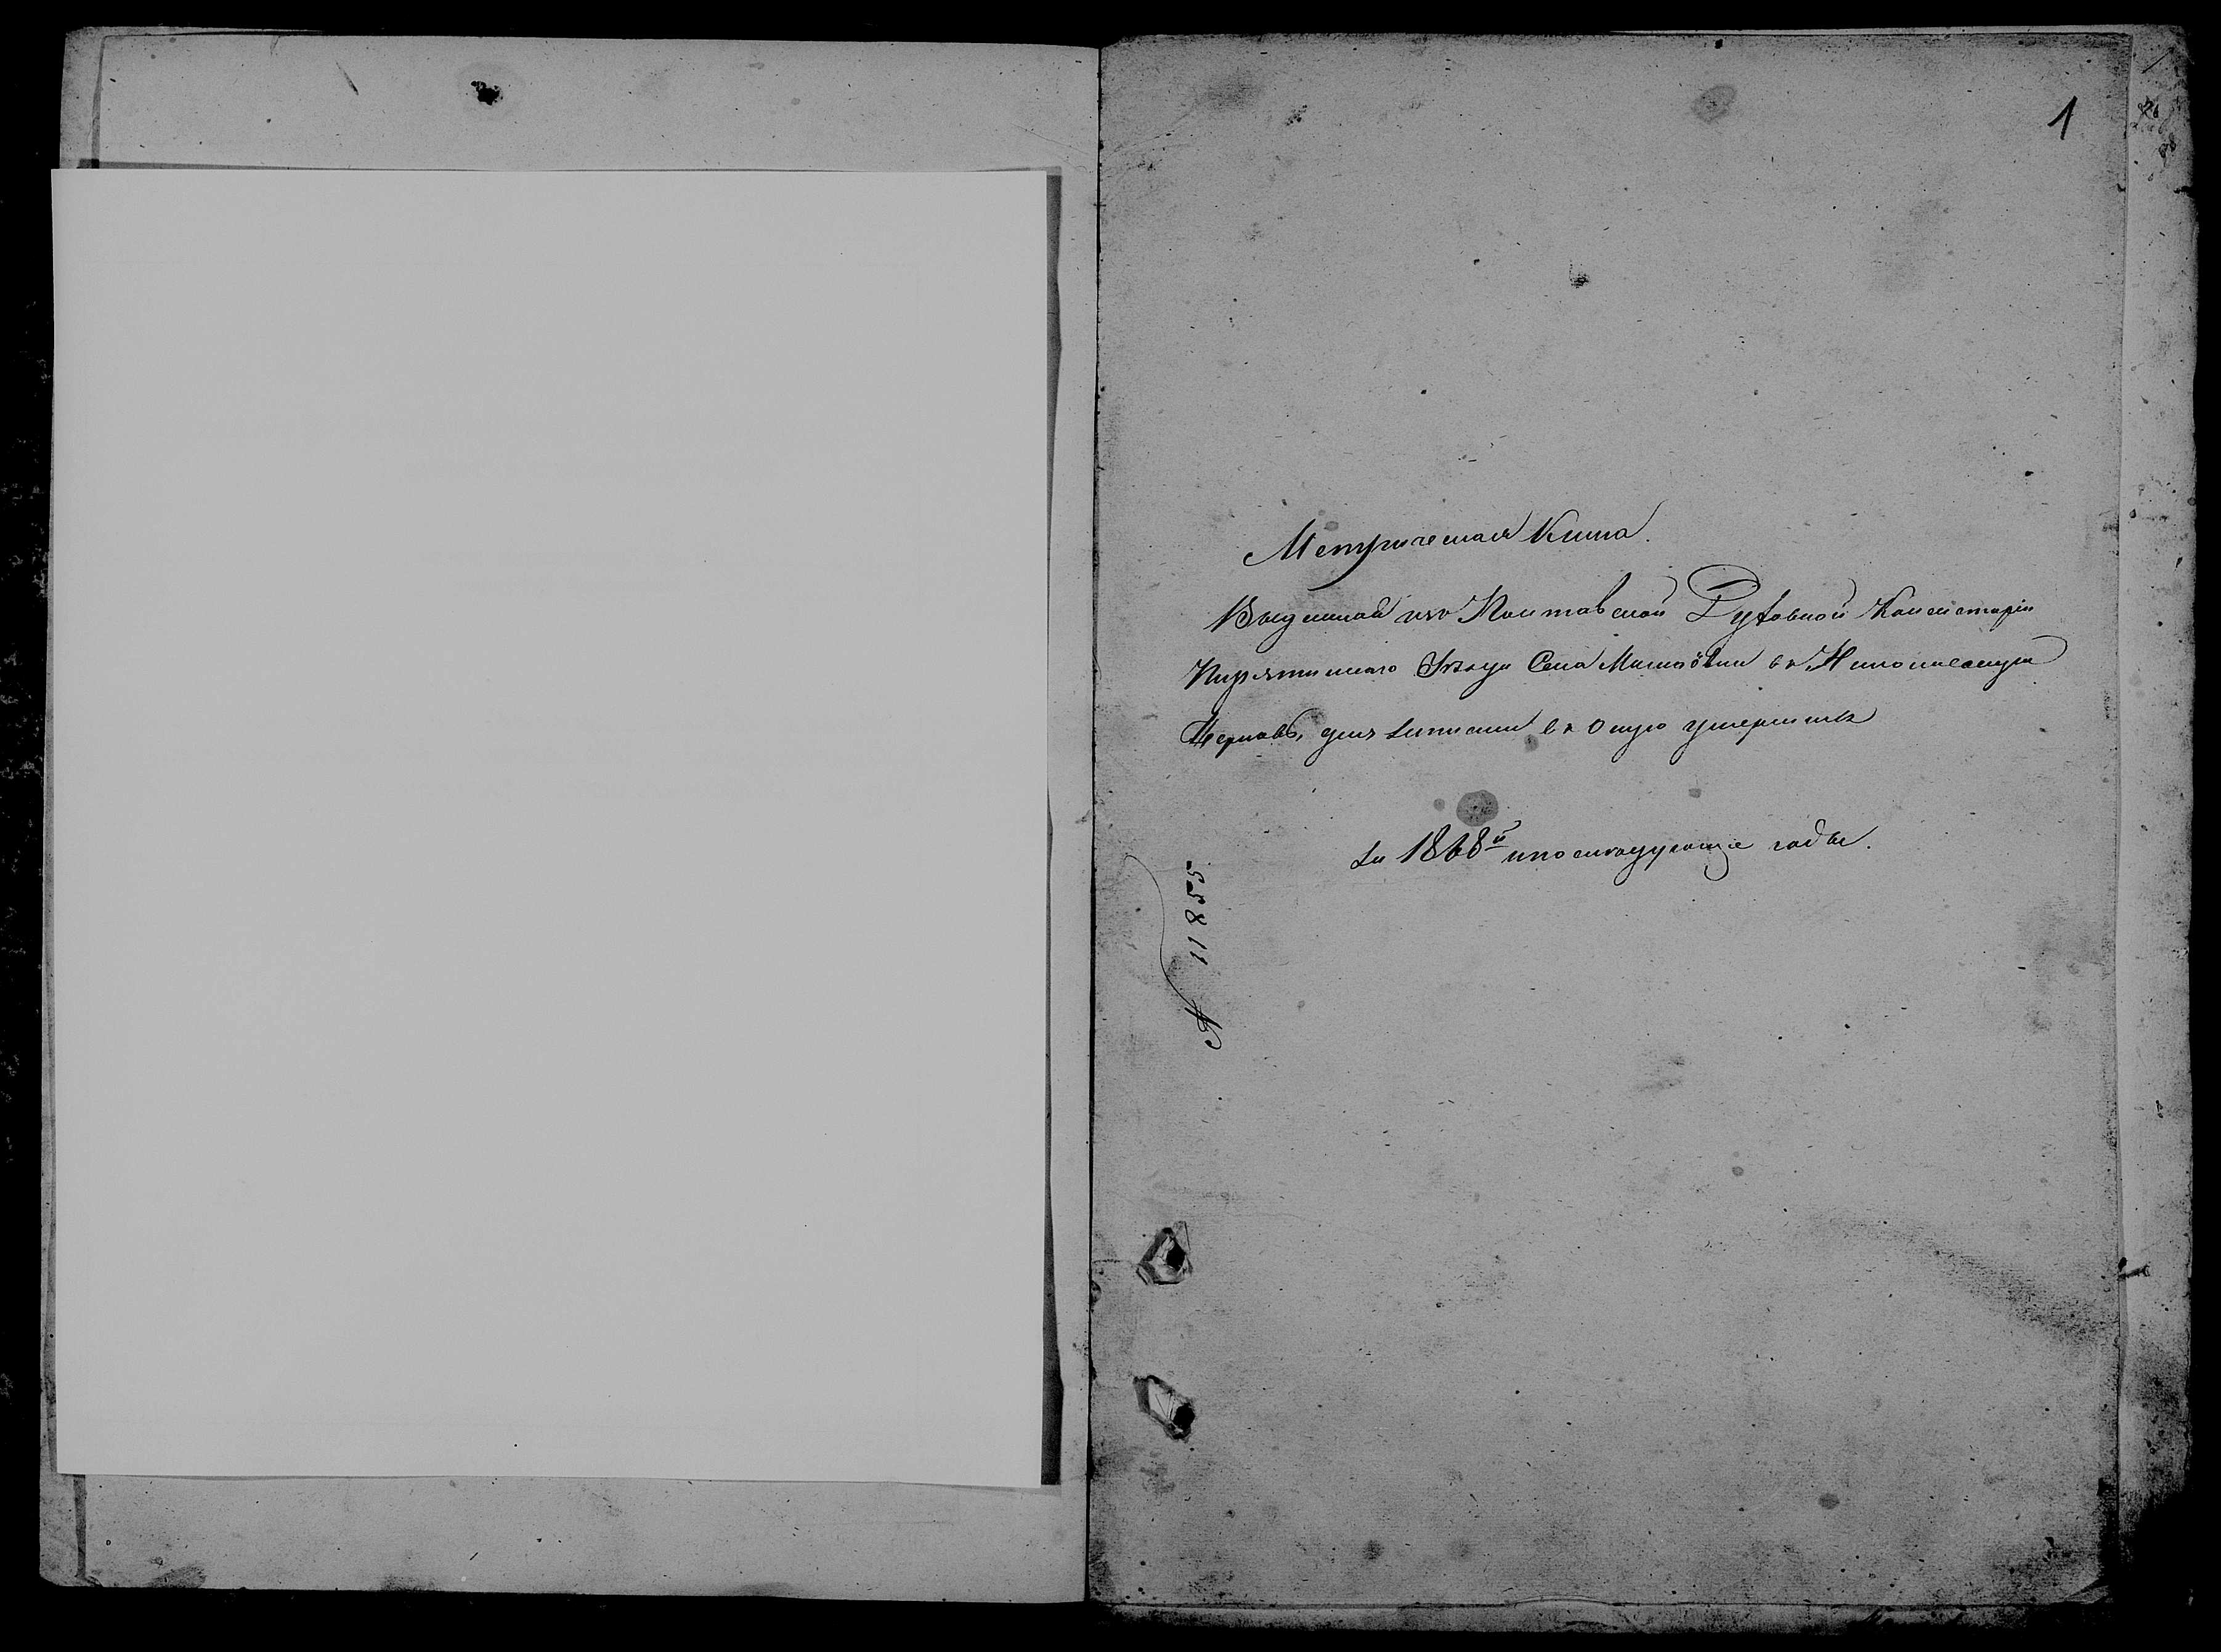 1
Метрическая Книга.
Выданная изъ Полтавской Духовной Консисторіи
Пирятинскаго Уѣзда Села въ Николаевскую
Церковь, для записки въ оную умершихъ
на 1868й и послѣдующіе годы.
№ 11855